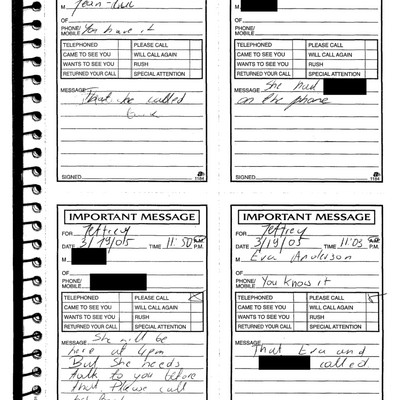 M
OF
PHONE/
MOBILE You have it
TELEPHONED PLEASE CALL
CAME TO SEE YOU WILL CALL AGAIN
WANTS TO SEE YOU RUSH
RETURNED YOUR CALL SPECIAL ATTENTION
MESSAGE That he called
SIGNED 1184
M
OF
PHONE/
MOBILE
TELEPHONED PLEASE CALL
CAME TO SEE YOU WILL CALL AGAIN
WANTS TO SEE YOU RUSH
RETURNED YOUR CALL SPECIAL ATTENTION
MESSAGE She had
on the phone
SIGNED 1184
IMPORTANT MESSAGE
FOR Jeffrey
DATE 3/19/05 TIME 11:50 A.M. P.M.
M
OF
PHONE/
MOBILE
TELEPHONED PLEASE CALL
CAME TO SEE YOU WILL CALL AGAIN
WANTS TO SEE YOU RUSH
RETURNED YOUR CALL SPECIAL ATTENTION
MESSAGE She will be
here at 4pm
But she needs
talk to you before
that. Please call
IMPORTANT MESSAGE
FOR Jeffrey
DATE 3/19/05 TIME 11:03 A.M. P.M.
M Eva Anderson
OF
PHONE/
MOBILE You know it
TELEPHONED PLEASE CALL
CAME TO SEE YOU WILL CALL AGAIN
WANTS TO SEE YOU RUSH
RETURNED YOUR CALL SPECIAL ATTENTION
MESSAGE That Eva and
called